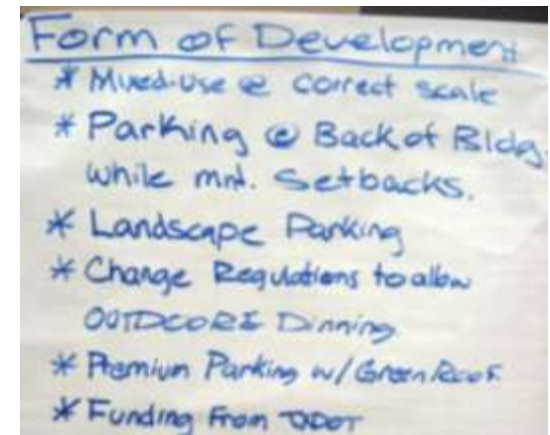 Form of Development
* Mixed-Use @ correct scale
* Parking @ Back of Bldg.
while mnt. Setbacks.
* Landscape Parking
* Change Regulations to allow
OUTDOORE Dinning.
* Premium Parking w/ Green Roof
* Funding From